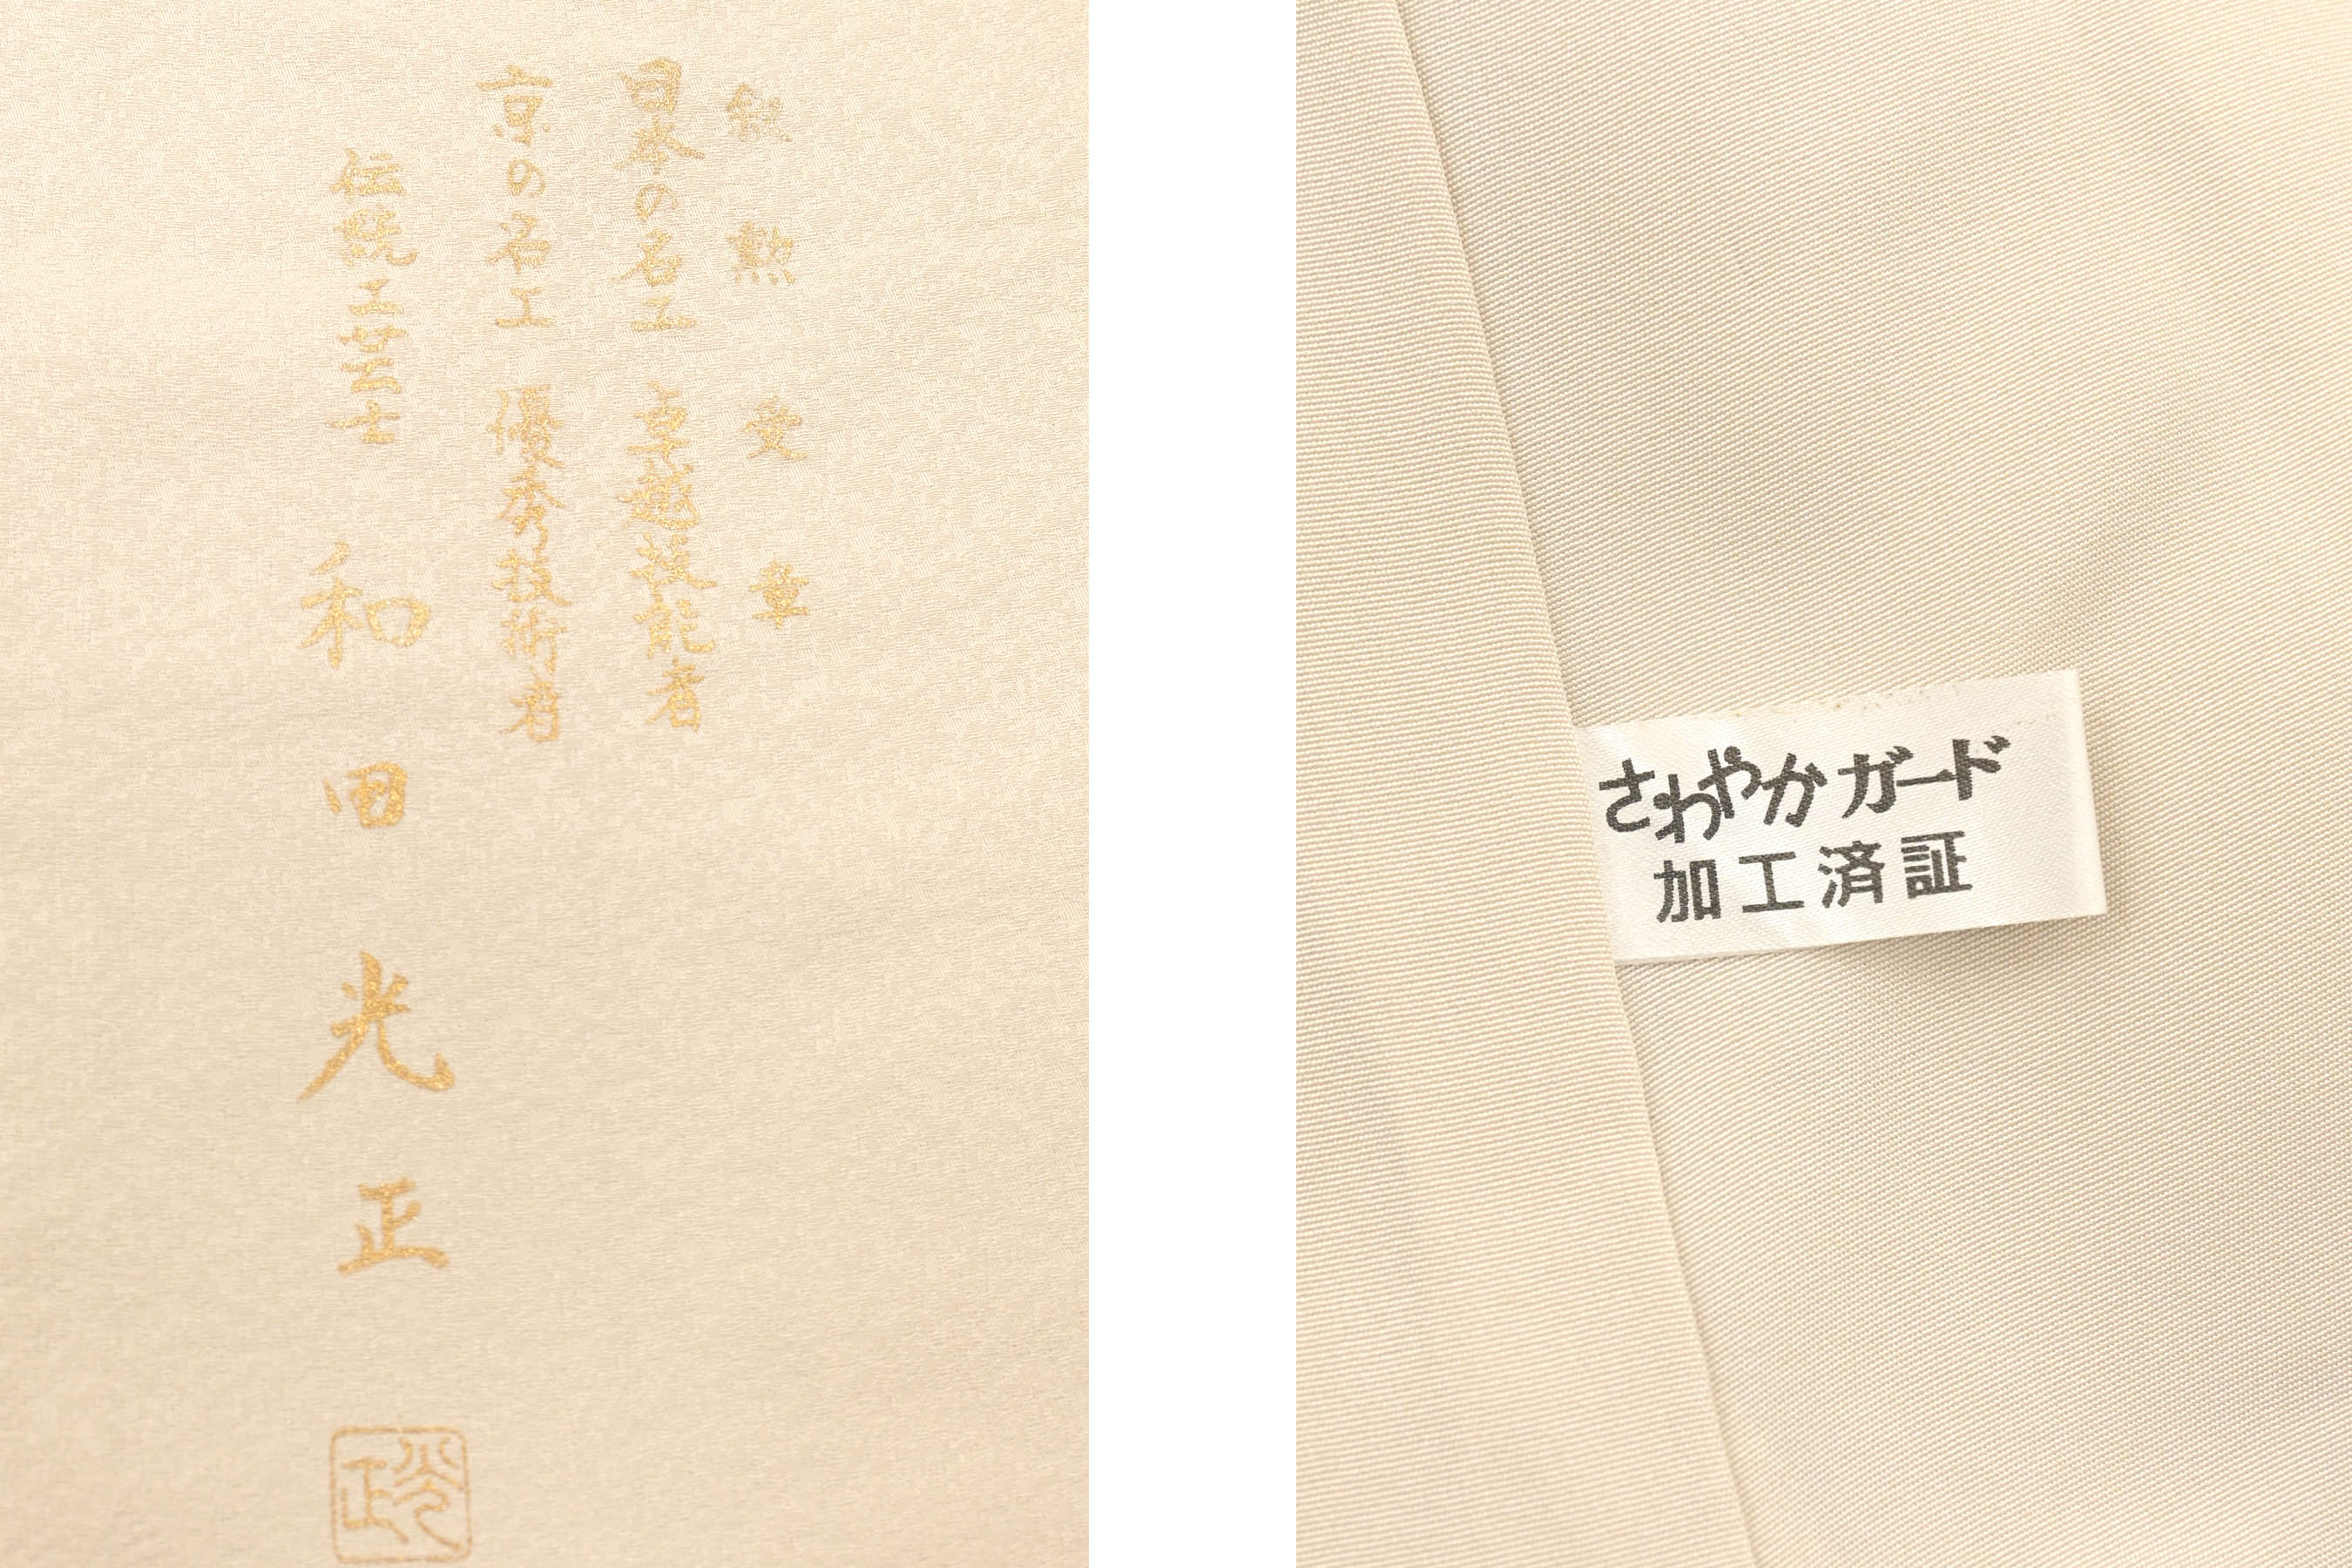 叙勲受章
日本の名工 卓越技能者
京の名工 優秀技術者
伝統工芸士 和田光正
光正
さわやかガード
加工済証